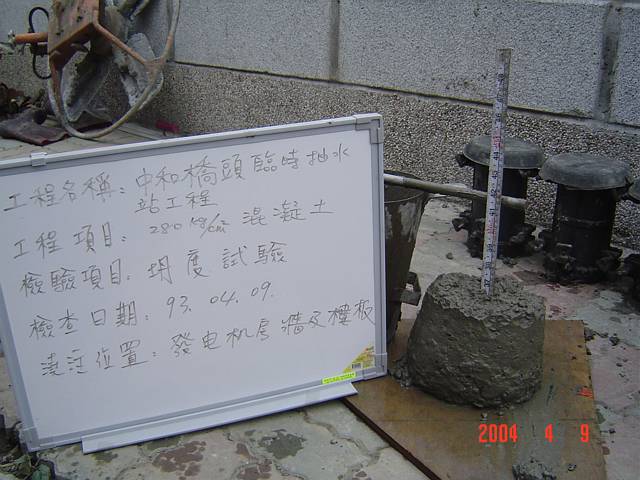 工程名稱：中和橋頭臨時抽水
站工程
工程項目：280 kg/cm² 混凝土
檢驗項目：坍度試驗
檢查日期：93.04.09.
澆注位置：發电机房牆及樓板
2004 4 9